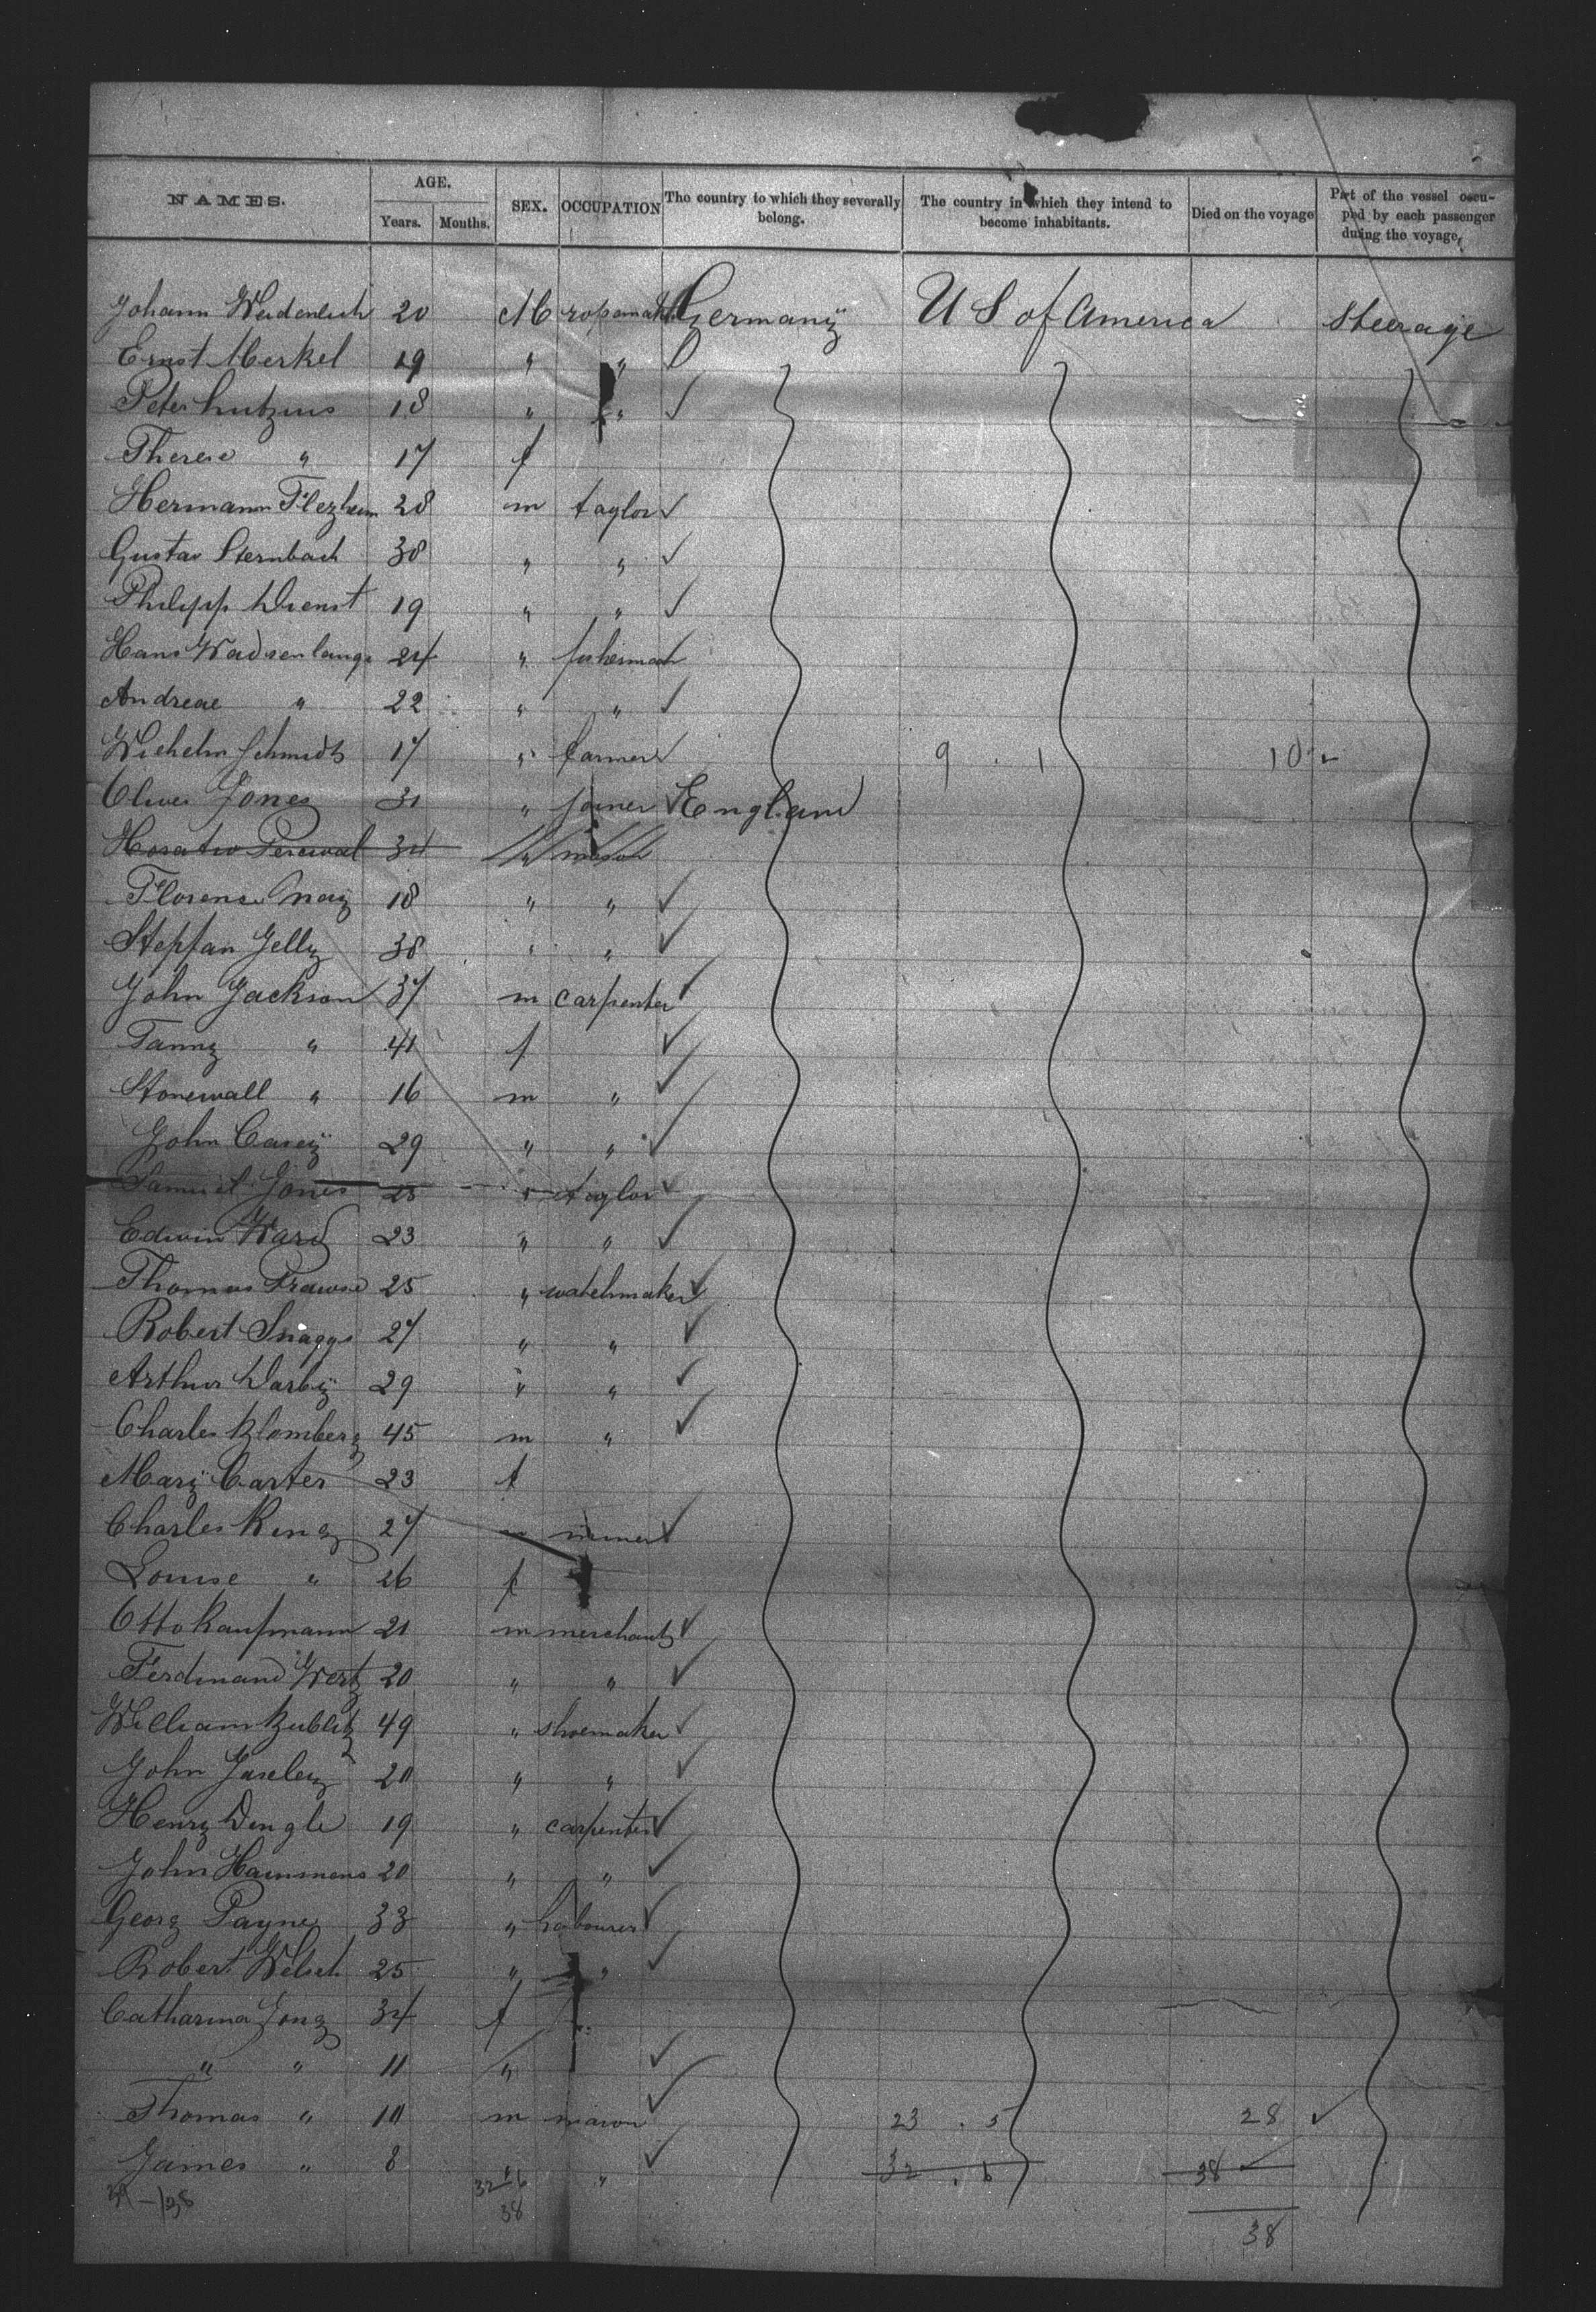 NAMES. AGE. Years. Months. SEX. OCCUPATION The country to which they severally belong. The country in which they intend to become inhabitants. Died on the voyage Part of the vessel occupied by each passenger during the voyage,
Johann 20 M Germany U S of America Steerage
Ernst Merkel 19 " "
Peter 18 " "
Therese " 17 f
Hermann 28 m taylor
Gustav Sternbach 38 " "
Philipp Dienst 19 " "
Hans 24 " fisherman
Andreae " 22 " "
Wilhelm Schmidt 17 " farmer 9 . 1 10
Oliver Jones 31 " joiner England
Horatio Percival 34 " mason
Florense May 18 " "
Stepfan Jelly 38 " "
John Jackson 37 m carpenter
Fanny " 41 f
Stonewall " 16 m "
John Casey 29 " "
Samuel Jones 25 " taylor
Edwin Ward 23 " "
Thomas 25 " watchmaker
Robert Snaggs 27 " "
Arthur Darby 29 " "
Charles Blomberg 45 m "
Mary Carter 23 f
Charles King 27 m miner
Louise " 26 f
Otto Kaufmann 21 m merchants
Ferdinand Wertz 20 " "
William Kublitz 49 " shoemaker
John 20 " "
Henry Dingle 19 " carpenter
John Hammens 20 " "
Georg Payne 33 " Labourer
Robert Welsch 25 " "
Catharina 34 f
" " 11 "
Thomas " 10 m mason 23 . 5 28
James " 8 " " 32 . 6 38
32 6
38 38